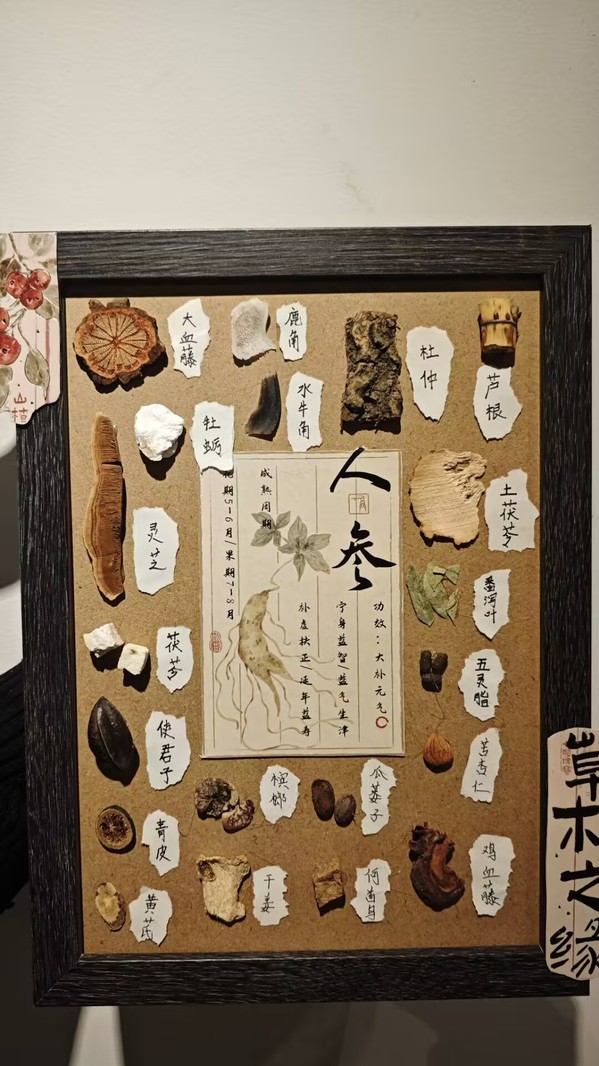 山楂
大血藤
鹿角
杜仲
芦根
水牛角
牡蛎
灵芝
土茯苓
番泻叶
五灵脂
苦杏仁
茯苓
使君子
青皮
黄芪
槟榔
瓜蒌子
干姜
何首乌
鸡血藤
人参
功效：大补元气
宁身益智/益气生津
补虚扶正/延年益寿
成熟周期
花期5-6月/果期7-8月
草木之缘